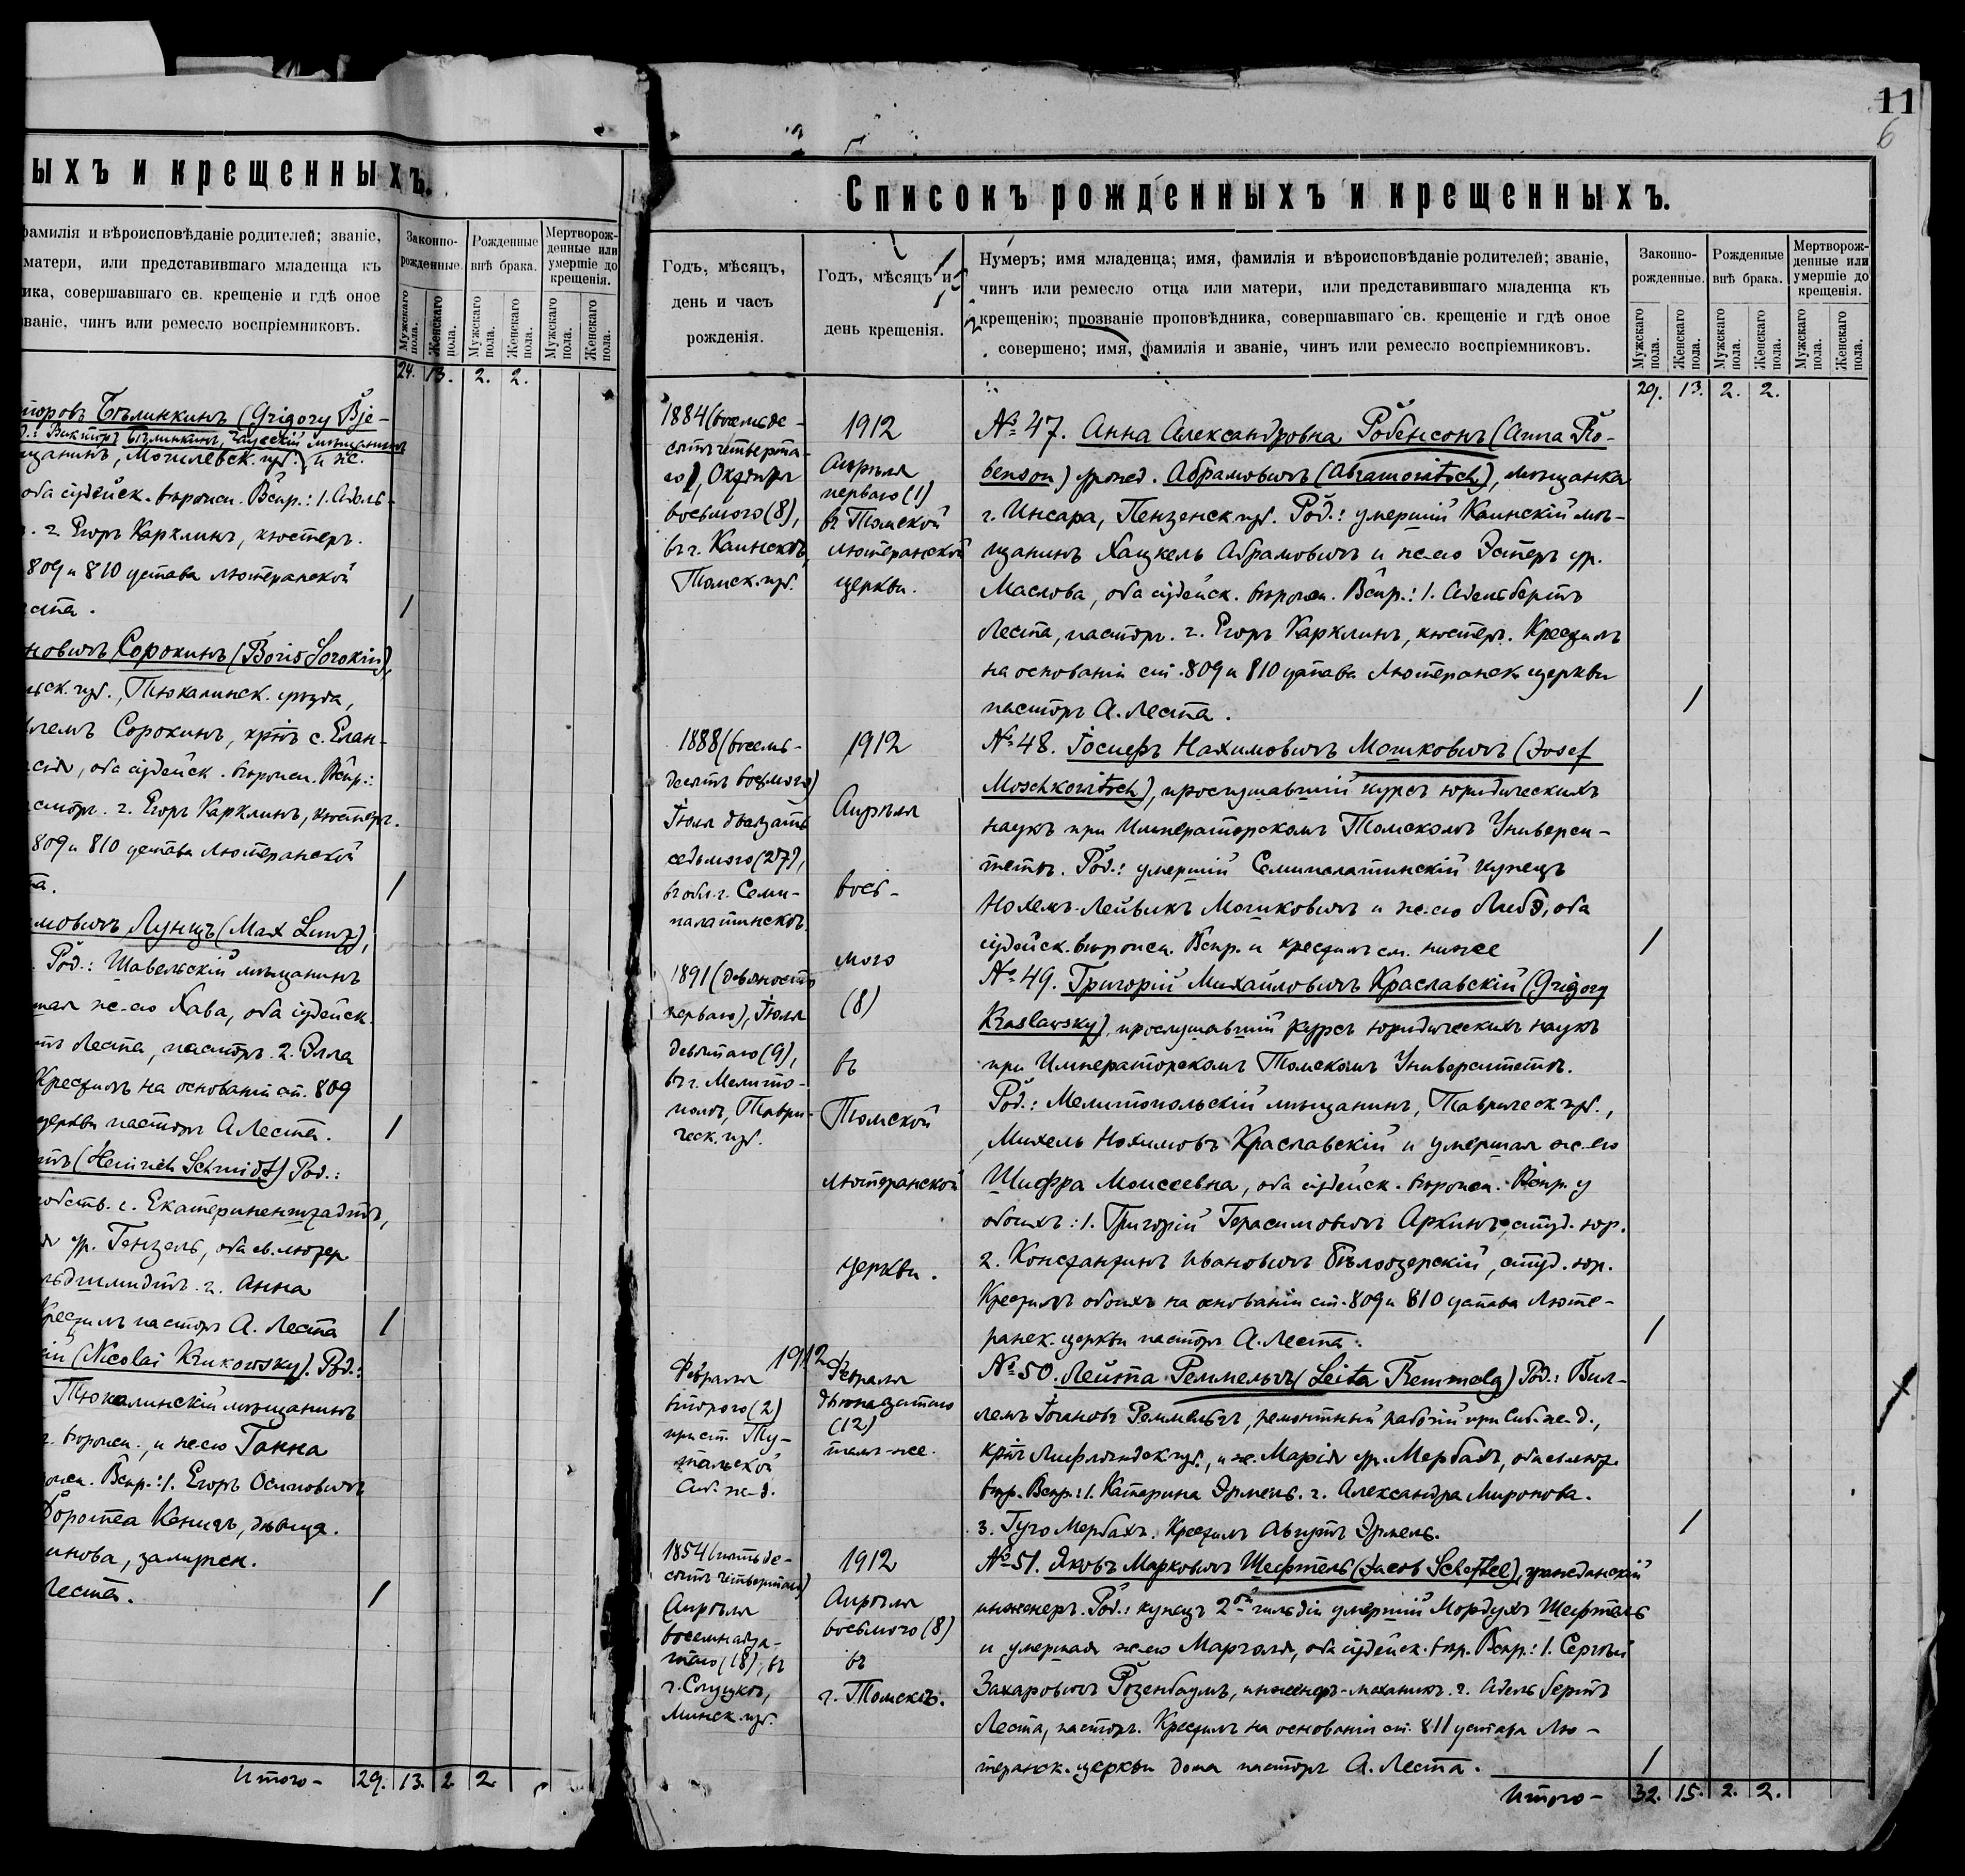 ыхъ и крещенныхъ.
фамилія и вѣроисповѣданіе родителей; званіе,
матери, или представившаго младенца къ
ика, совершавшаго св. крещеніе и гдѣ оное
званіе, чинъ или ремесло воспріемниковъ.
Законно-рожденные.
Рожденные внѣ брака.
Мертворожденные или умершіе до крещенія.
Мужскаго пола.
Женскаго пола.
Мужскаго пола.
Женскаго пола.
Мужскаго пола.
Женскаго пола.
24. 13. 2. 2.
торовъ Бѣлинкинъ (Grigory Bje-
д.: Викторъ Бѣлинкинъ, мѣщанинъ
щанинъ, Могилевск. губ. и ж.
оба іудейск. вѣроисп. Вспр.: 1. Адель-
2. Егоръ Карклинъ, кюстеръ.
809 и 810 устава лютеранской
еста.
1
новичъ Сорокинъ (Boris Sorokin),
ьск. губ., Тюкалинск. уѣзда,
лемъ Сорокинъ, кртъ с. Елан-
оба іудейск. вѣроисп. Вспр.:
сторъ. 2. Егоръ Карклинъ, кюстеръ.
809 и 810 устава лютеранской
та.
1
мовичъ Лунцъ (Max Lunz),
Род.: Шавельскій мѣщанинъ
шая ж. его Хава, оба іудейск.
тъ Леста, пасторъ. 2. Элла
Крестилъ на основаніи ст. 809
церкви пасторъ А. Леста.
1
тъ (Heinrich Schmidt) Род.:
собств. с. Екатериненштадтъ,
ур. Гензель, оба ев. лютер.
льдшмидтъ. 2. Анна
Крестилъ пасторъ А. Леста
1
ій (Nicolai Krukowsky). Род.:
Тюкалинскій мѣщанинъ
вѣроисп., и ж. его Ганна
оисп. Вспр.: 1. Егоръ Осиповичъ
Доротеа Кеницъ, дѣвица.
инова, замужн.
Леста.
1
Итого - 29. 13. 2 2.
11
6
Списокъ рожденныхъ и крещенныхъ.
Годъ, мѣсяцъ,
день и часъ
рожденія.
Годъ, мѣсяцъ и
день крещенія.
Нумеръ; имя младенца; имя, фамилія и вѣроисповѣданіе родителей; званіе,
чинъ или ремесло отца или матери, или представившаго младенца къ
крещенію; прозваніе проповѣдника, совершавшаго св. крещеніе и гдѣ оное
совершено; имя, фамилія и званіе, чинъ или ремесло воспріемниковъ.
Законно-рожденные.
Рожденные внѣ брака.
Мертворожденные или умершіе до крещенія.
Мужскаго пола.
Женскаго пола.
Мужскаго пола.
Женскаго пола.
Мужскаго пола.
Женскаго пола.
29. 13. 2. 2.
1884 (восемьде-
сятъ четверта-
го), Октября
восьмого (8),
въ г. Каинскѣ,
Томск. губ.
1912
Апрѣля
перваго (1)
въ Томской
лютеранской
церкви.
№ 47. Анна Александровна Робенсонъ (Anna Ro-
benson) урожд. Абрамовичъ (Abramowitsch), мѣщанка
г. Инсара, Пензенск. губ. Род.: умершій Каинскій мѣ-
щанинъ Хацкель Абрамовичъ и ж. его Эстеръ ур.
Маслова, оба іудейск. вѣроисп. Вспр.: 1. Адельбертъ
Леста, пасторъ. 2. Егоръ Карклинъ, кюстеръ. Крестилъ
на основаніи ст. 809 и 810 устава Лютеранск. церкви
пасторъ А. Леста.
1
1888 (восемь-
десятъ восьмого)
Іюля двадцать
седьмого (27),
въ обл. г. Семи-
палатинскѣ.
1912
Апрѣля
вось-
мого
(8)
въ
Томской
лютеранской
церкви.
№ 48. Іосифъ Нахимовичъ Мошковичъ (Josef
Moschkowitsch), прослушавшій курсъ юридическихъ
наукъ при Императорскомъ Томскомъ Универси-
тетѣ. Род.: умершій Семипалатинскій купецъ
Нохемъ-Лейвикъ Мошковичъ и ж. его Либэ, оба
іудейск. вѣроисп. Вспр. и крестилъ см. ниже
1
1891 (девяносто
перваго), Іюля
девятаго (9),
въ г. Мелито-
полѣ, Таври-
ческ. губ.
№ 49. Григорій Михайловичъ Краславскій (Grigory
Kraslawsky), прослушавшій курсъ юридическихъ наукъ
при Императорскомъ Томскомъ Университетѣ.
Род.: Мелитопольскій мѣщанинъ, Таврическ. губ.,
Михель Нохимовъ Краславскій и умершая ж. его
Шифра Моисеевна, оба іудейск. вѣроисп. Вспр. у
обоихъ: 1. Григорій Герасимовичъ Аркинъ, студ. юр.
2. Константинъ Ивановичъ Бѣлозерскій, студ. юр.
Крестилъ обоихъ на основаніи ст. 809 и 810 устава Люте-
ранск. церкви пасторъ А. Леста.
1
1912
Февраля
второго (2)
при ст. Ту-
тальской
Сиб. ж. д.
Февраля
двѣнадцатаго
(12)
тамъ-же.
№ 50. Лейта Реммельгъ (Leita Remmelg) Род.: Вил-
лемъ Іогановъ Реммельгъ, ремонтный рабочій при Сиб. ж. д.,
кртъ Лифляндск. губ., и ж. Марія ур. Мербахъ, оба ев. лют.
вѣр. Вспр.: 1. Катарина Эрмель. 2. Александра Миронова.
3. Гуго Мербахъ. Крестилъ Августъ Эрмель.
1
1854 (пятьде-
сятъ четвертаго)
Апрѣля
восемнадца-
таго (18), въ
г. Слуцкѣ,
Минск. губ.
1912
Апрѣля
восьмого (8)
въ
г. Томскѣ.
№ 51. Яковъ Марковичъ Шефтель (Jacob Scheftel), гражданскій
инженеръ. Род.: купецъ 2ой гильдіи умершій Мордухъ Шефтель
и умершая ж. его Марголя, оба іудейск. вѣр. Вспр.: 1. Сергѣй
Захаровичъ Розенбаумъ, инженеръ-механикъ. 2. Адельбертъ
Леста, пасторъ. Крестилъ на основаніи ст. 811 устава Лю-
теранск. церкви дома пасторъ А. Леста.
1
Итого - 32. 15. 2. 2.